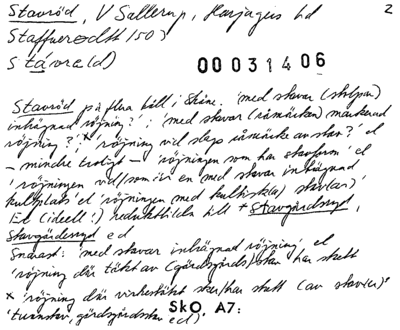 Stavröd, V Sallerup, Harjagers hd
2
Staffueredth 1503
stá̀vrə(d)
00031406
Stavröd på flera håll i Skåne. 'med stavar (stolpar)
inhägnad röjning?'; 'med stavar (råmärken) markerad
röjning?';× 'röjning vid slags råmärke av stav?' el
– mindre troligt – 'röjningen som har stavform' el
'röjningen vid/som är en med stavar inhägnad
kultplats' el 'röjningen med kultisk(a) stav(ar)'
El (ideell!) reduktbildn till *Stavgärdsryd,
Stavgärdesryd e d
Snarast: 'med stavar inhägnad röjning' el
'röjning där täkt av (gärdsgårds)stav har skett
× 'röjning där virkestäkt sker/har skett (av stav(ar)'
'tunnstav, gärdsgårdsstav e d).
SkO. A7: